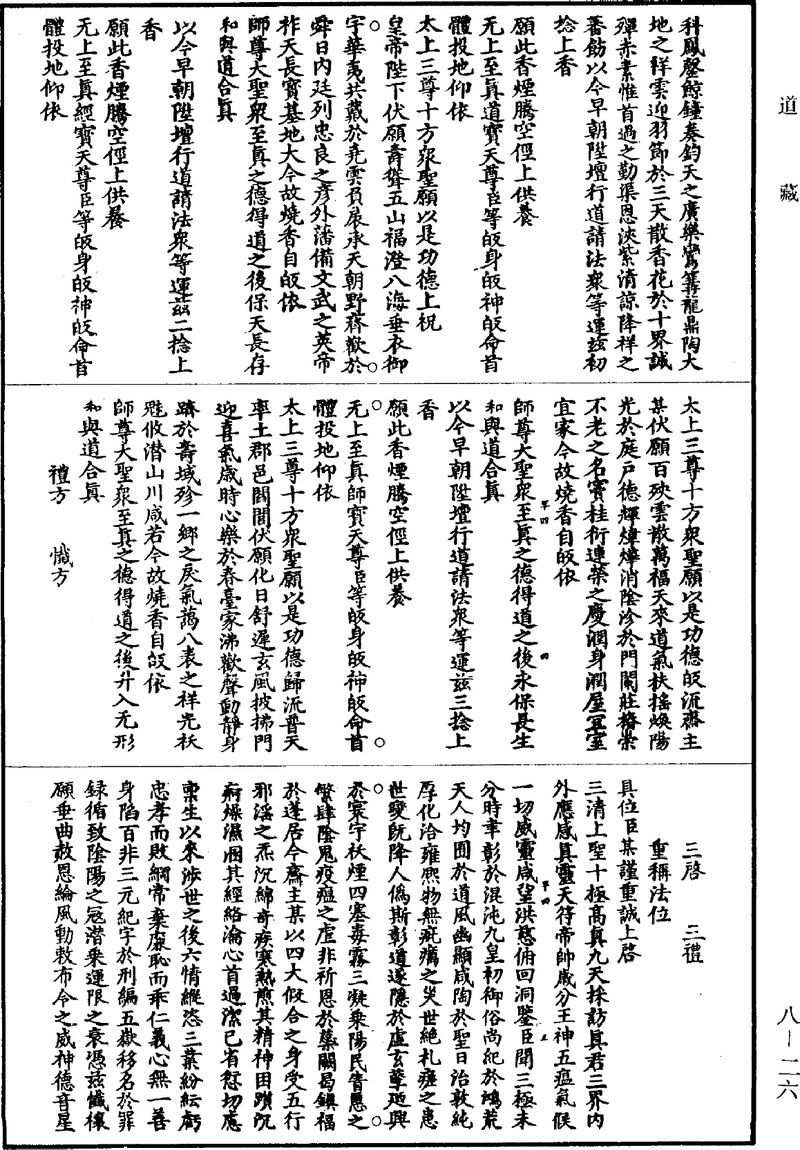 道藏
科鳳磬鯨鐘奏鈞天之廣樂鸞篝龍鼎陶大
地之祥雲迎羽節於三天散香花於十界誠
殫赤素惟首過之勤渠恩浹紫清諒降祥之
蕃飭以今早朝陞壇行道請法衆等運兹初
捻上香
願此香煙騰空徑上供養
无上至真道寶天尊臣等皈身皈神皈命首
體投地仰依
太上三尊十方衆聖願以是功德上祝
皇帝陛下伏願壽聳五山福澄八海垂衣御
宇華夷共戴於堯雲負扆承天朝野齊歡於
舜日内廷列忠良之彦外藩備文武之英帝
祚天長寶基地大今故燒香自皈依
師尊大聖衆至真之德得道之後保天長存
和與道合真
以今早朝陞壇行道請法衆等運兹二捻上
香
願此香煙騰空徑上供養
无上至真經寶天尊臣等皈身皈神皈命首
體投地仰依
太上三尊十方衆聖願以是功德皈流齋主
某伏願百殃雲散萬福天來道氣扶摇煥陽
光於庭戶德輝煒燁消陰沴於門闌莊椿崇
不老之名竇桂衍連榮之慶潤身潤屋宜室
宜家今故燒香自皈依
師尊大聖衆至真之德得道之後永保長生
和與道合真
以今早朝陞壇行道請法衆等運兹三捻上
香
願此香煙騰空徑上供養
无上至真師寶天尊臣等皈身皈神皈命首
體投地仰依
太上三尊十方衆聖願以是功德歸流普天
率土郡邑閭閻伏願化日舒遲玄風披拂門
迎喜氣歲時心樂於春臺家沸歡聲動静身
躋於壽域殄一鄉之戾氣藹八表之祥光祅
魃攸潜山川咸若今故燒香自皈依
師尊大聖衆至真之德得道之後升入无形
和與道合真
禮方 懺方
三啓 三禮
重稱法位
具位臣某謹重誠上啓
三清上聖十極高真九天採訪真君三界内
外應感真靈天符帝帥歲分王神五瘟氣候
一切威靈咸望洪慈俯回洞鑒臣聞三極未
分時聿彰於混沌九皇初御俗尚紀於鴻荒
天人均囿於道風幽顯咸陶於聖日治敦純
厚化洽雍熙物無疵癘之災世絶札瘥之患
世變既降人僞斯彰道遂隱於虚玄孽廼興
於寰宇祅煙四塞毒霧三凝乘陽民眚慝之
繁肆陰鬼疫瘟之虐非祈恩於蘂闕曷鎮福
於蓬居今齋主某以四大假合之身受五行
邪淫之炁沉綿奇疾寒熱煎其精神困躓沉
痾燥濕涸其經絡瀹心首過潔己省愆切應
稟生以來涉世之後六情縱恣三業紛紜虧
忠孝而敗綱常棄廉恥而乖仁義心無一善
身陷百非三元紀字於刑編五嶽移名於罪
録循致陰陽之寇潜乘運限之衰憑兹懺禳
願垂曲赦恩綸風動敷布令之威神德音星
八—二六